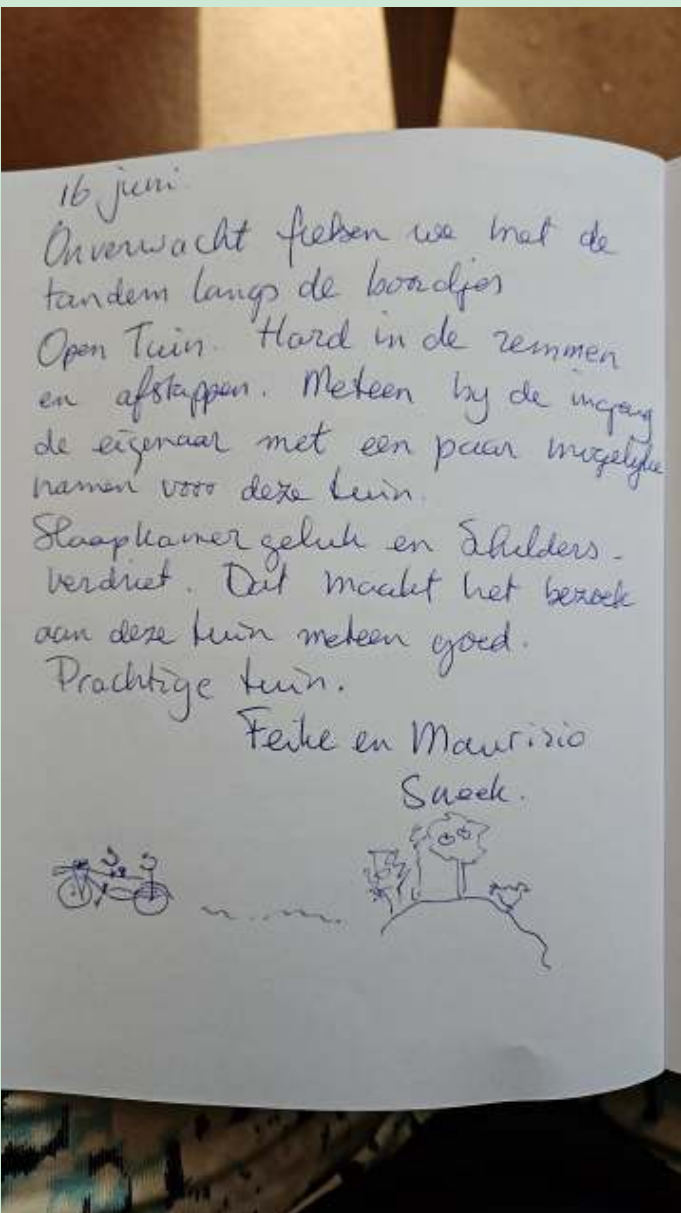 16 juni.
Onverwacht fietsen we met de
tandem langs de boordjes
Open Tuin. Hard in de remmen
en afstappen. Meteen bij de ingang
de eigenaar met een paar mogelijke
namen voor deze tuin.
Slaapkamergeluk en Schilders-
verdriet. Dat maakt het bezoek
aan deze tuin meteen goed.
Prachtige tuin.
Feike en Maurizio
Sneek.